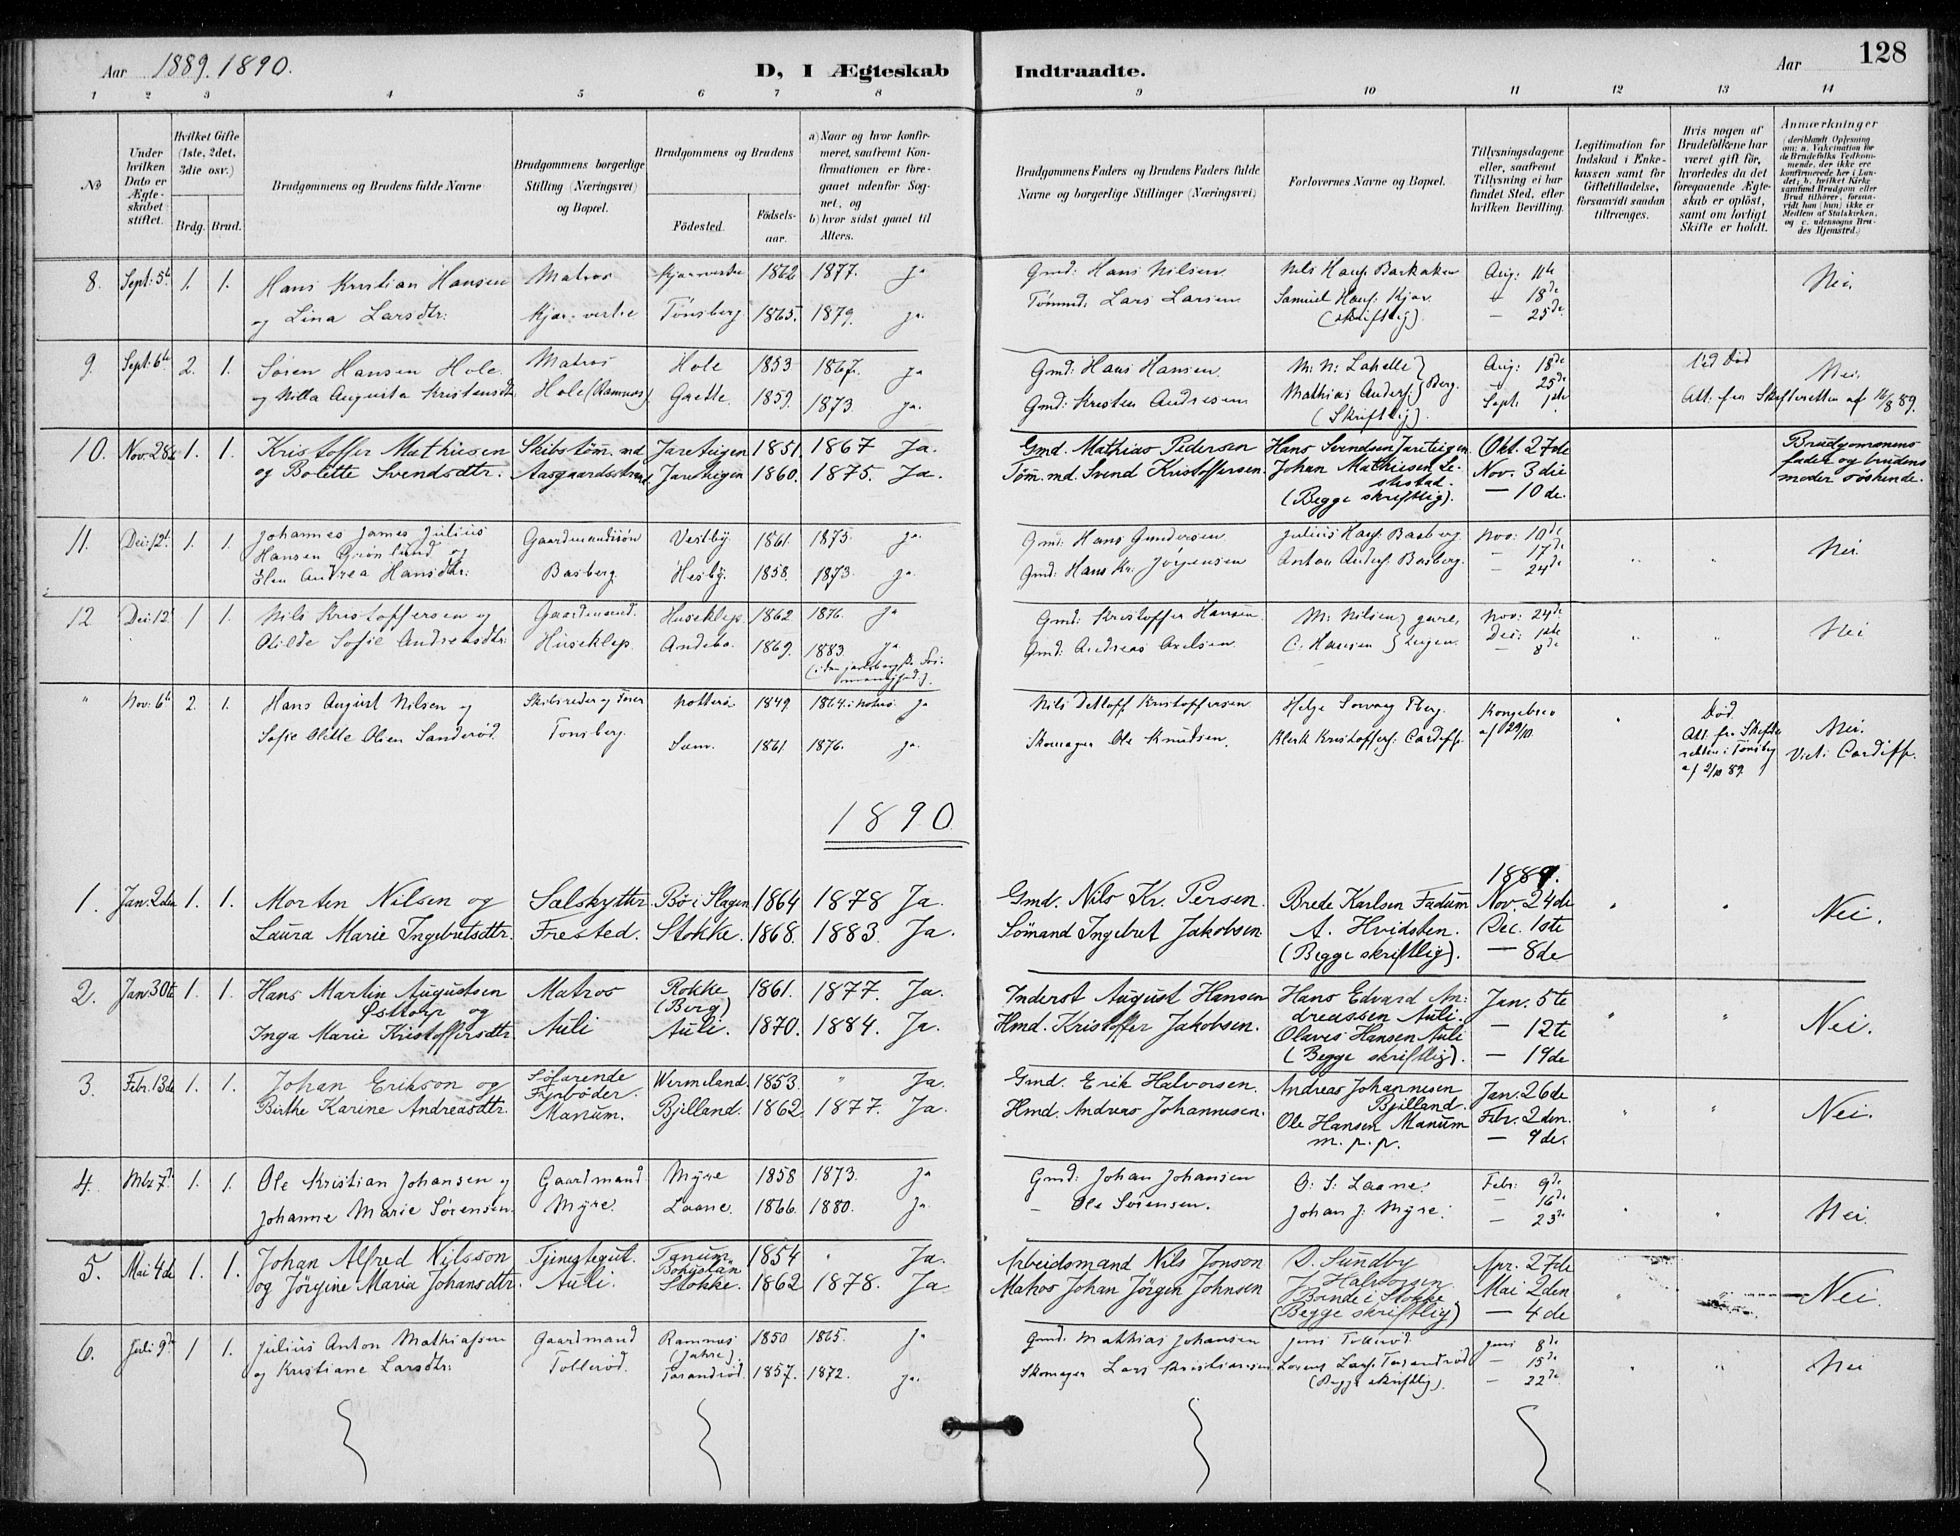 128
Aar 1889. 1890.
D, I Ægteskab Indtraadte.
Aar
1 2 3 4 5 6 7 8 9 10 11 12 13 14
No
Under hvilken Dato er Ægteskabet stiftet.
Hvilket Gifte (1ste, 2det, 3die osv.)
Brdg. Brud.
Brudgommens og Brudens fulde Navne
Brudgommens borgerlige Stilling (Næringsvei) og Bopæl.
Brudgommens og Brudens
Fødested. Fødselsaar.
a) Naar og hvor konfirmeret, saafremt Konfirmationen er foregaaet udenfor Sognet, og
b) hvor sidst gaaet til Alters.
Brudgommens Faders og Brudens Faders fulde Navne og borgerlige Stillinger (Næringsvei)
Forlovernes Navne og Bopæl.
Tillysningsdagene eller, saafremt Tillysning ei har fundet Sted, efter hvilken Bevilling.
Legitimation for Indskud i Enkekassen samt for Giftetilladelse, forsaavidt saadan tiltrænges.
Hvis nogen af Brudefolkene har været gift før, hvorledes da det foregaaende Ægteskab er opløst, samt om lovligt Skifte er holdt.
Anmærkninger
(deriblandt Oplysning om: a. Vakcination for de Brudefolks Vedkommende, der ikke ere konfirmerede her i Landet; b. hvilket Kirkesamfund Brudgom eller Brud tilhører, forsaavidt han (hun) ikke er Medlem af Statskirken, og c. udensogns Brudes Hjemsted.)
8. Sept: 5t 1. 1. Hans Kristian Hansen Matros 1862 1877. ja Gmd: Hans Nilsen Nils Hans: Barkaker Aug: 11te Nei.
og Lina Larsdtr: Tønsberg 1865. 1879. ja. Lars Larsen Samuel Hans: Kjær – 18de
(Skriftlig). – 25de
9. Sept: 6te 2. 1. Søren Hansen Hole. Matros Hole 1853 1867. ja Gmd: Hans Hansen. Aug: 18de Ved Død Nei.
og Augusta Kristensdtr Hole (Ramnes) 1859. 1873. ja. Gmd: Kristen Andresen Mathias Anders: Berg. – 25de Att. fra Skifteretten af 16/8 89.
(Skriftlig). Sept: 1ste
10. Nov: 28de 1. 1. Kristoffer Mathiesen Skibstøm. md Jareteigen 1851. 1867 Ja. Gmd. Mathias Pedersen Hans Svendsen Jareteigen Okt. 27de Brudgommens
og Bolette Svendsdtr. Aasgaardsstrand. Jareteigen 1860. 1875. Ja. Tøm. md. Svend Kristoffersen. Johan Mathiesen Nov. 3die fader og brudens
(Begge skriftlig). – 10de. moder søskende.
11. Dec: 12t. 1. 1. Johannes James Julius Gaardmandssøn Vestby 1861 1875. ja. Gmd: Hans Gundersen Julius Hans: Basberg Nov: 10de Nei.
Hansen Grønlund og – 17de
Elen Andrea Hansdtr: Basberg. Hesby. 1858. 1873. ja. Gmd: Hans Kr: Jørgensen Anton Anders: Basberg. – 24de
12 Dec: 12t 1 1. Nils Kristoffersen og Gaardmand. Huseklep. 1862 1876. ja Gmd: Kristoffer Hansen. M: Nilsen Nov: 24de Nei
Olilde Sofie Andreasdtr: Huseklep. Andebo. 1869. 1883 ja Gmd: Andreas Axelsen C. Hansen Dec: 1ste
– 8de
" Nov: 6te 2. 1. Hans August Nilsen og Skibsreder og Nøtterø 1849 1864: ja Nils Detloff Kristoffersen Kongebrev Død. Nei.
Sofie Olette Olsen Sanderød. Tønsberg. Sem. 1861 1876. ja. Skomager Ole Knudsen. Klerk Kristoffers: Cardiff. af 29/10 Att. fra Skifteretten i Tønsberg af 2/10 89. Viet i Cardiff.
1890
1889.
1. Jan. 2den 1. 1. Morten Nilsen og Sælskytter Bø i Slagen 1864 1878 Ja. Gmd. Nils Kr. Persen. Brede Karlsen Fadum Nov. 24de Nei.
Laura Marie Ingebretsdtr. Frested. Stokke. 1868. 1883. Ja. Sømand Ingebret Jakobsen. A. Hvidsten. Dec. 1ste
(Begge skriftlig). – 8de
2. Jan 30te 1. 1. Hans Martin Augustsen Matros Rokke 1861. 1877. Ja. Inderst August Hansen Hans Edvard An: Jan. 5te Nei.
og (Berg) dreassen Auli.
Inga Marie Kristoffersdtr. Auli Auli. 1870. 1884. Ja. Hmd. Kristoffer Jakobsen. Olaves Hansen Auli – 12te
(Begge skriftlig). – 19de
3. Febr. 13de 1. 1. Johan Erikson og Søfarende Wermeland. 1853. " Ja. Gmd. Erik Halvorsen. Andreas Johannesen Jan. 26de Nei.
Fyrbøder. Bjelland.
Birthe Karine Andreasdtr. Manum. Bjelland. 1862 1877. Ja. Hmd. Andreas Johannesen. Ole Hansen Manum Febr. 2den.
m. p. p. – 9de.
4. Mrz 7de 1. 1. Ole Kristian Johansen og Gaardmand Myre 1858 1873. ja Gmd: Johan Johansen O: S: Laane. Febr: 9de Nei.
Johanne Marie Sørensen. Myre. Laane. 1866. 1880. ja. – Ole Sørensen. Johan J: Myre. – 16de
– 23de
5. Mai 4de 1. 1. Johan Alfred Nilsson Tjenestegut. Tanum 1854 " Ja. Arbeidsmand Nils Jonson O. Sundby Apr. 27de Nei.
Bohuslän
og Jørgine Maria Johansdtr. Auli. Stokke. 1862 1878. Ja. Matros Johan Jørgen Johnsen J. Halvorsen Mai 2den
Bonde i Stokke
(Begge skriftlig) – 4de
6. Juli 9de 1 1. Julius Anton Mathiassen Gaardmand Ramnes 1850 1865. ja Gmd. Mathias Johansen Jens Tollerød. Juni 8de Nei
(Jahre).
og Kristiane Larsdtr: Tollerød. Tarandrød. 1857. 1872. ja. Skomager Lars Kristiansen Lorens Lars: Tarandrød – 15de
(Begge skriftlig). – 22de